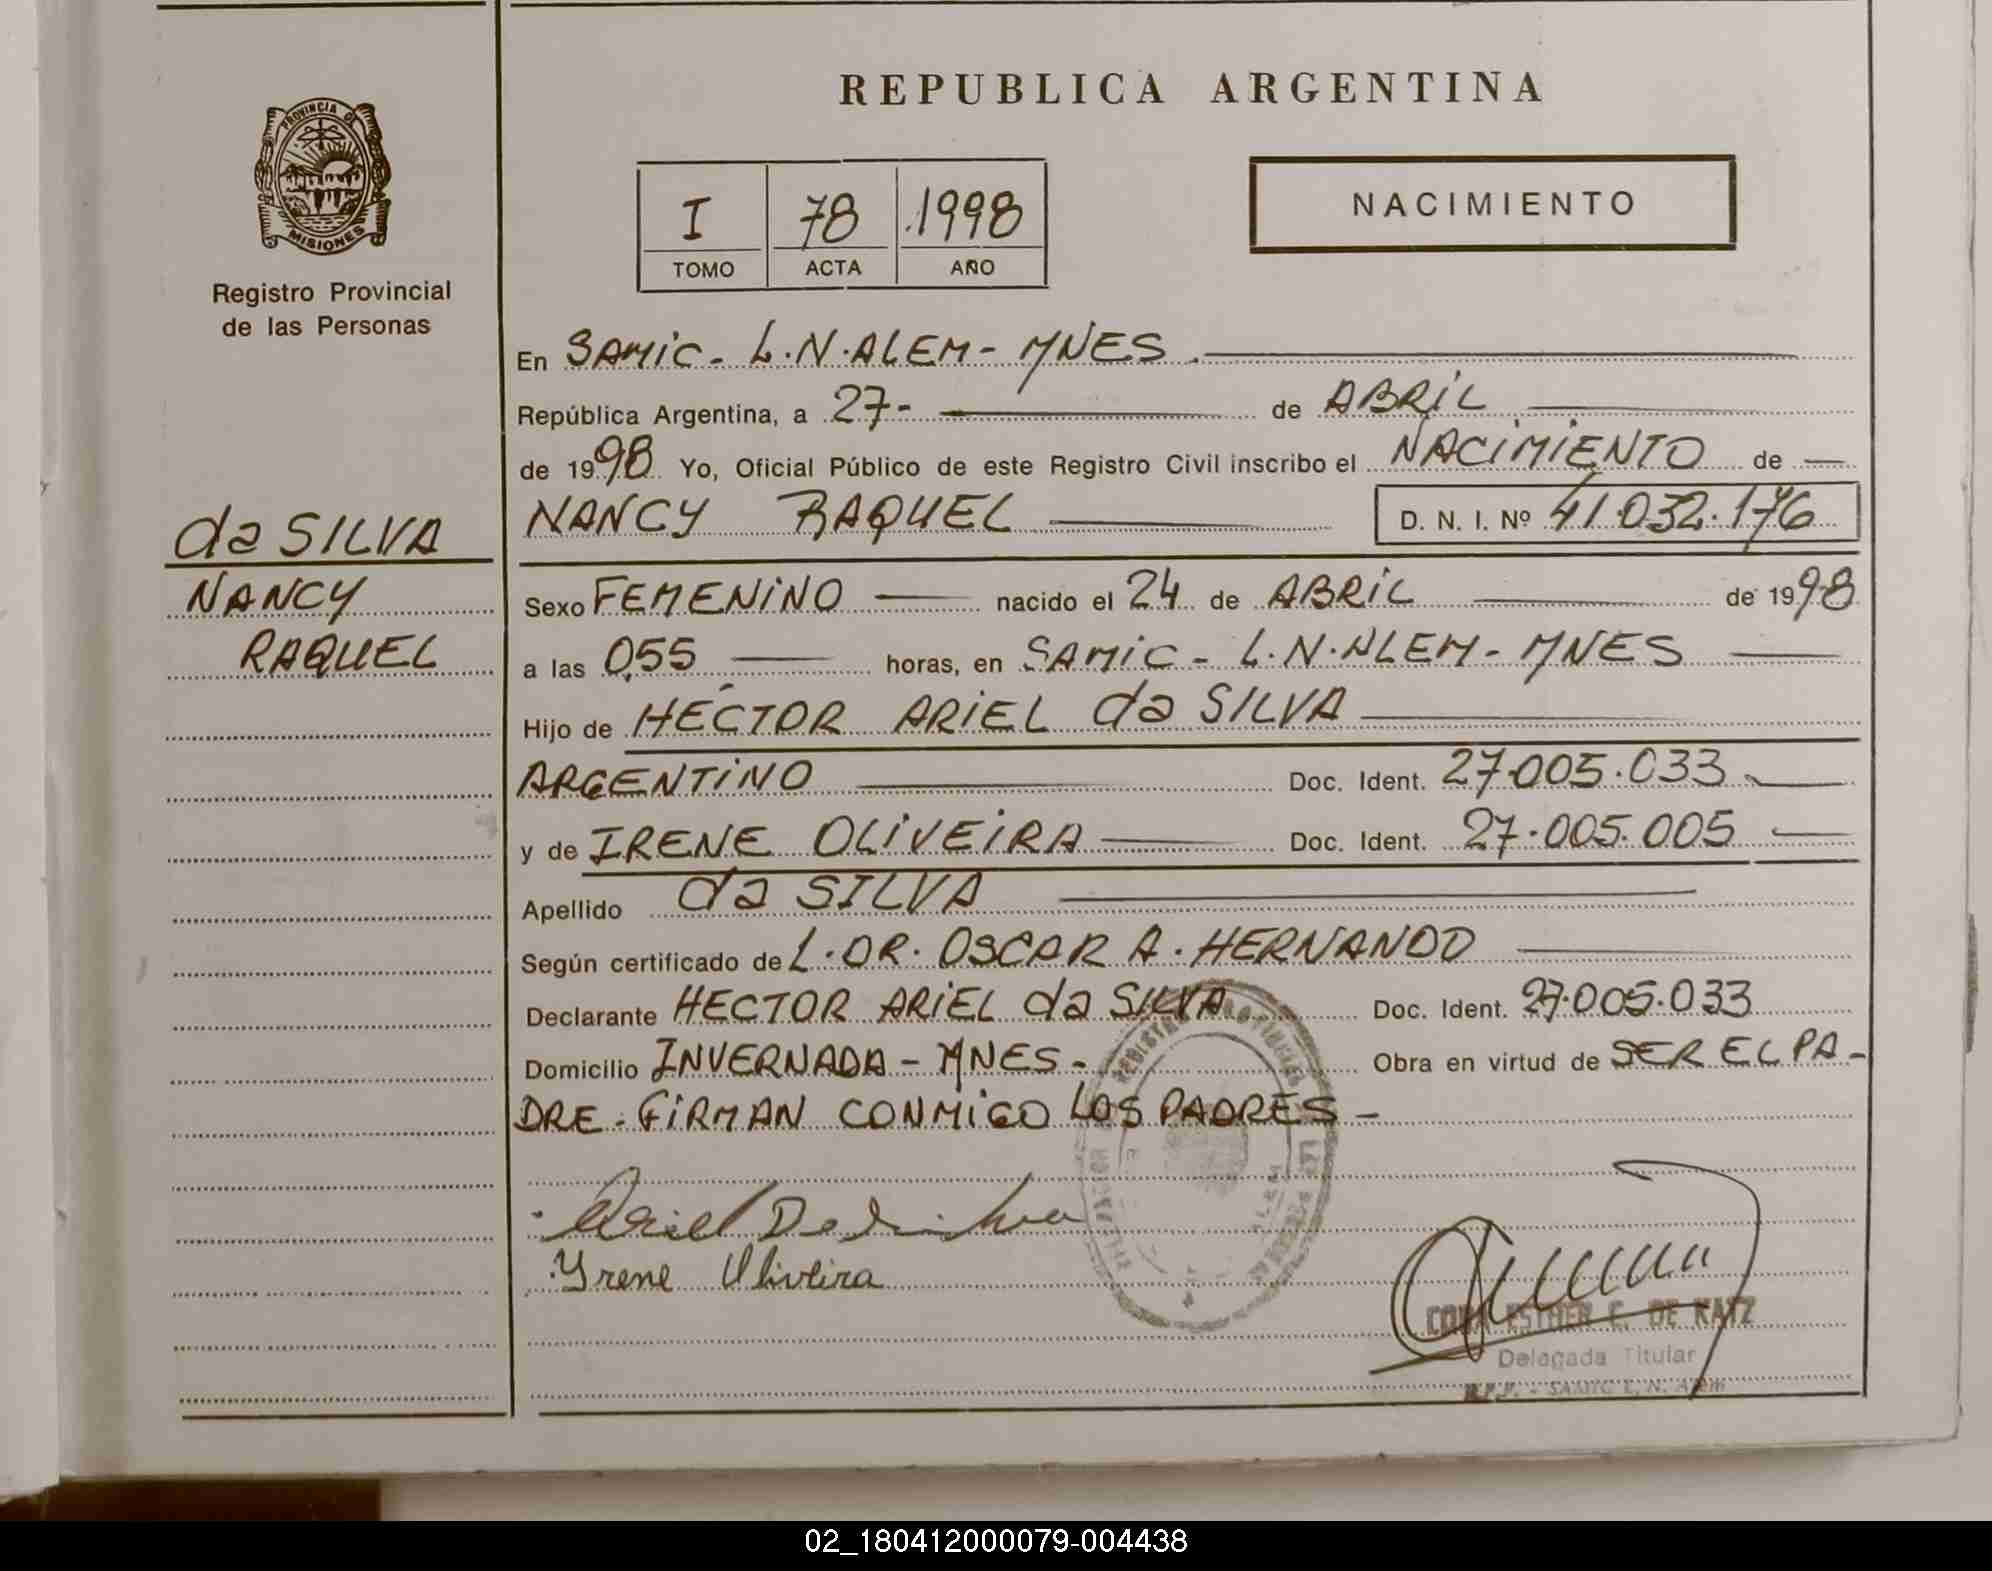 REPUBLICA ARGENTINA
PROVINCIA DE
MISIONES
Registro Provincial
de las Personas
I 78 1998
TOMO ACTA AÑO
NACIMIENTO
En SAMIC - L.N. ALEM - MNES
República Argentina, a 27- de ABRIL
de 1998 Yo, Oficial Público de este Registro Civil inscribo el NACIMIENTO de
da SILVA
NANCY
RAQUEL
NANCY RAQUEL D. N. I. Nº 41.032.176
Sexo FEMENINO nacido el 24 de ABRIL de 1998
a las 0,55 horas, en SAMIC - L.N. ALEM - MNES
Hijo de HECTOR ARIEL da SILVA
ARGENTINO Doc. Ident. 27.005.033
y de IRENE OLIVEIRA Doc. Ident. 27.005.005
Apellido da SILVA
Según certificado de L. DR. OSCAR A. HERNANDO
Declarante HECTOR ARIEL da SILVA Doc. Ident. 27.005.033
Domicilio INVERNADA - MNES - Obra en virtud de SER EL PA-
DRE - FIRMAN CONMIGO LOS PADRES -
Ariel Da Silva
Yrene Oliveira
ESTHER C. DE KATZ
Delegada Titular
SAMIC L. N. Alem
02_180412000079-004438